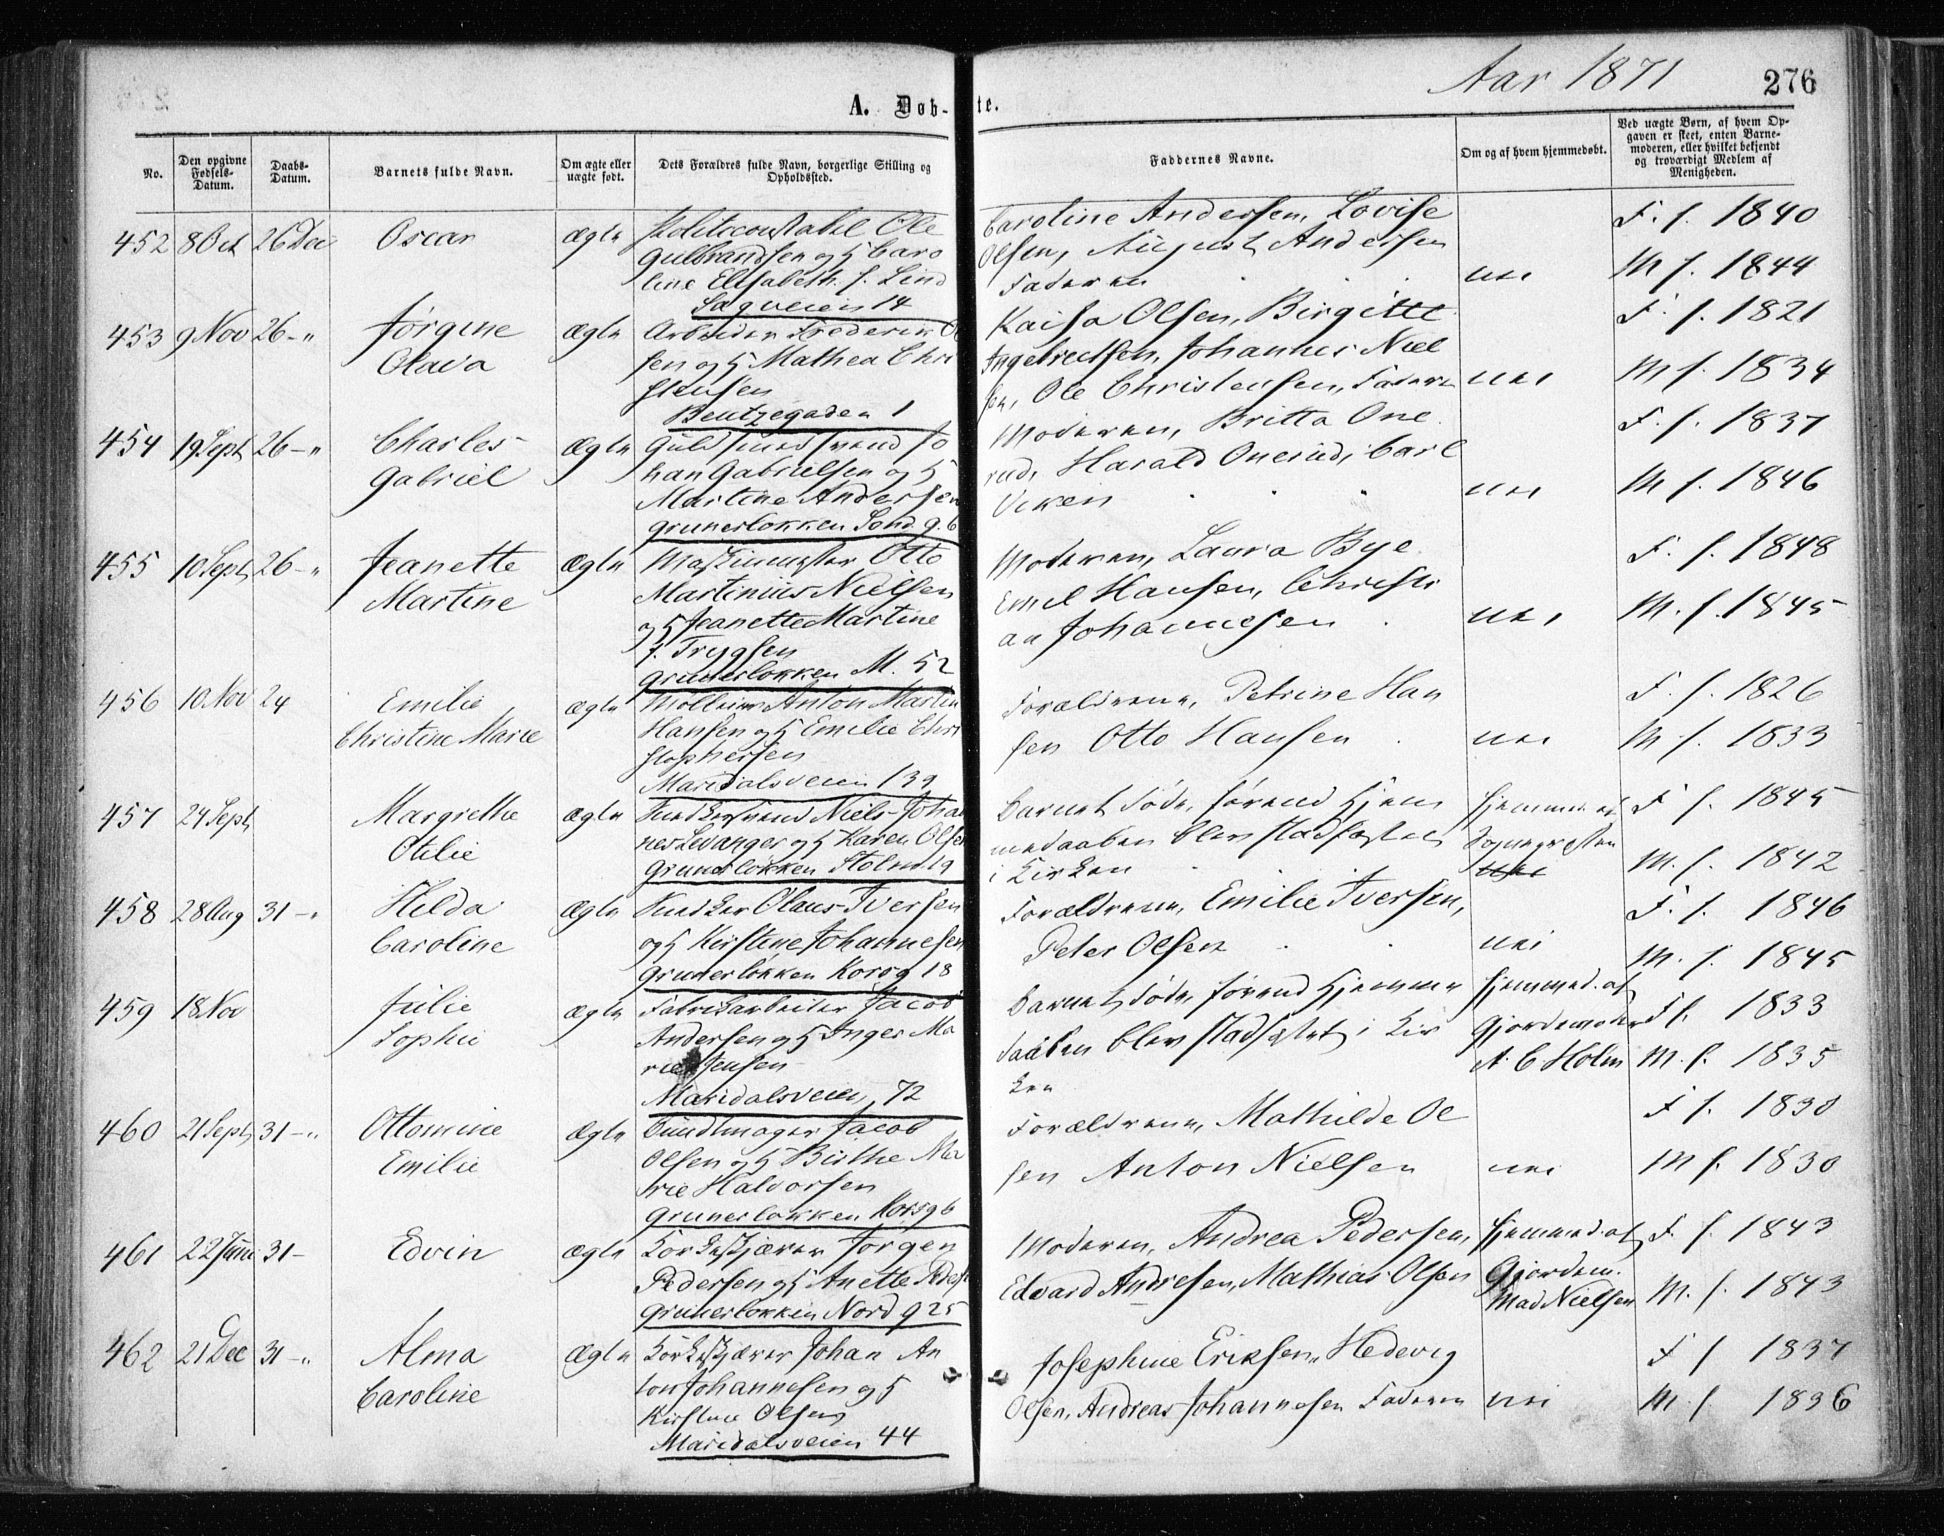 Aar 1871
276
A. Døb-
te.
No.
Den opgivne Fødsels-Datum.
Daabs-Datum.
Barnets fulde Navn.
Om ægte eller uægte født.
Dets Forældres fulde Navn, borgerlige Stilling og Opholdssted.
Faddernes Navne.
Om og af hvem hjemmedøbt.
Ved uægte Børn, af hvem Opgaven er skeet, enten Barnemoderen, eller hvilket bekjendt og troværdigt Medlem af Menigheden.
452 8 Oct 26 Dec Oscar ægte Politiconstabel Ole
Gulbrandsen og H Caro
line Elisabeth f. Lind
Sagveien 14
Caroline Andersen, Lovise
Olsen, August Andersen
Faderen
nei
F. f. 1840
M f. 1844
453 9 Nov 26 - " Jørgine
Olava
ægte
Arbeider Frederik Ol
sen og H Mathea Chri
stensen
Bentzegaden 1
Kaisa Olsen, Birgitte
Ingebretsen, Johannes Niel
sen, Ole Christensen, Faderen
nei
F. f. 1821
M f. 1834
454 19 Sept 26 - " Charles
Gabriel
ægte
Guldsmedsvend Jo
han Gabrielsen og H
Martine Andersen
Grunerløkken Sond. g. 6
Moderen, Britta One
rud, Harald Onerud, Carl
Viken
nei
F. f. 1837
M f. 1846
455 10 Sept 26 - " Jeanette
Martine
ægte
Maskinmester Otto
Martinius Nielsen
og H Jeanette Martine
f. Trygsen
Grunerløkken M. 52
Moderen, Laura Bye
Emil Hansen, Christi
an Johannesen
nei
F. f. 1848
M. f. 1845
456 10 Nov 24 Emilie
Christine Marie
ægte
Møller Anton Martin
Hansen og H Emilie Chri
stophersen
Maridalsveien 139
Forældrene, Petrine Han
sen Otto Hansen
nei
F. f. 1826
M f. 1833
457 24 Sept Margrethe
Otilie
ægte
Snedkersvend Niels Johan
nes Levanger og H Karen Olsen
Grunerløkken Stolmg 19
Barnet døde, førend Hjem
medaaben blev stadfæstet
i Kirken
Hjemmed. af
Sognepresten
F f. 1845
M. f. 1842
458 28 Aug 31 - " Hilda
Caroline
ægte
Snedker Olaus Iversen
og H Kirstine Johannesen
Grunerløkken Korsg 18
Forældrene, Emilie Iversen,
Peter Olsen
nei
F. f. 1846
M. f. 1845
459 18 Nov Julie
Sophie
ægte
Fabrikarbeider Jacob
Andersen og H Inger Ma
rie Jensen
Maridalsveien 72
Barnet døde, førend Hjemme
daaben blev stadfæstet i Kir
ken
Hjemmed. af
Gjordemoder
A. C Holm
F f. 1833
M. f. 1835
460 21 Sept 31 - " Ottomine
Emilie
ægte
Bundtmager Jacob
Olsen og H Birthe Ma
rie Halvorsen
Grunerløkken Korsg 6
Forældrene, Mathilde Ol
sen Anton Nielsen
nei
F f. 1830
M f. 1830
461 22 Juni 31 - Edvin ægte Korkeskjærer Jørgen
Pedersen og H Anette Peders
Grunerløkken Nord g 25
Moderen, Andrea Pedersen,
Edvard Andresen, Mathias Olsen
Hjemmed. af
Gjordem.
Mad Nielsen
F. f. 1843
M. f. 1843
462 21 Dec 31 - " Alma
Caroline
ægte
Korkeskjærer Johan An
ton Johannesen og H
Kirstine Olsen
Maridalsveien 44
Josephine Eriksen, Hedevig
Olsen, Andreas Johannesen Faderen
nei
F f 1837
M. f 1836